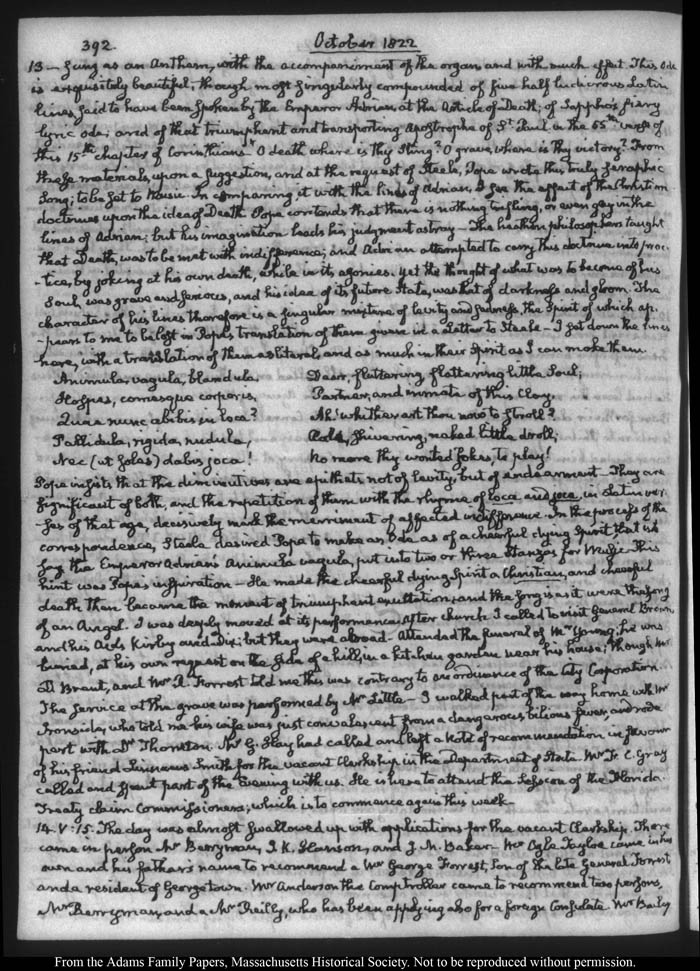 392.
October 1822
13 — sung as an Anthem, with the accompaniment of the organ and with much effect. This Ode
is exquisitely beautiful; though most singularly compounded of five half ludicrous Latin
lines, said to have been spoken by the Emperor Adrian, at the Article of Death; of Sappho's fiery
lyric ode; and of that triumphant and transporting Apostrophe of St. Paul in the 55th verse of
this 15th chapter of Corinthians "O death where is thy Sting? O grave, where is thy victory? From
these materials, upon a suggestion, and at the request of Steele, Pope wrote this truly seraphic
Song; to be set to Music. In comparing it with the lines of Adrian, I see the effect of the Christian
doctrines upon the idea of Death. Pope contends that there is nothing trifling, or even gay in the
lines of Adrian; but his imagination leads his judgment astray — The heathen philosophers taught
that Death, was to be met with indifference; and Adrian attempted to carry this doctrine into prac-
-tice, by joking at his own death, while in its agonies. Yet the thought of what was to become of his
Soul, was grave and serious, and his idea of its future state, was that of darkness and gloom. The
character of his lines therefore is a singular mixture of levity and sadness, the Spirit of which ap-
-pears to me to be lost in Pope's translation of them given in a letter to Steele — I set down the lines
here, with a translation of them as literal, and as much in their Spirit as I can make them.
Animula, vagula, blandula, Dear, fluttering, flattering little Soul;
Hospes, comesque corporis, Partner, and inmate of this Clay.
Quæ nunc abibis in loca? Ah! whither art thou now to stroll?
Pallidula, rigida, nudula, Cold, shivering, naked little droll,
Nec (ut soles) dabis joca! No more thy wonted jokes, to play!
Pope insists that the diminutives are epithets not of levity, but of endearment — They are
significant of both, and the repetition of them with the rhyme of loca and joca, in Latin ver-
ses of that age, decisively mark the merriment of affected indifference. In the process of the
correspondence, Steele desired Pope to make an Ode as of a cheerful dying Spirit that is to
say the Emperor Adrian's Animula vagula, put into two or three stanzas for Music. This
hint was Pope's inspiration — He made the cheerful dying Spirit a Christian, and cheerful
death then became the moment of triumphant exultation; and the song is as it were the song
of an Angel. I was deeply moved at its performance. After church I called to visit General Brown
and his Aids Kirby and Dix; but they were abroad. Attended the funeral of Mr Young; he was
buried, at his own request on the side of a hill, in a kitchen garden near his house; though Mr
D Brent, and Mr R. Forrest told me this was contrary to an ordinance of the City Corporation.
The service at the grave was performed by Mr Little — I walked part of the way home with Mr
Ironside, who told me his wife was just convalescent from a dangerous bilious fever, and rode
part with Dr Thornton. Mr G. Hay had called and left a Note of recommendation in favour
of his friend Smith for the vacant Clerkship in the Department of State. Mr F. C. Gray
called and spent part of the Evening with us. He is here to attend the Session of the Florida
Treaty claim Commissioners; which is to commence again this week.
14. V:15. The day was almost swallowed up with applications for the vacant Clerkship. There
came in person Mr Berryman, and J. M. Baker. Mr Ogle Tayloe came in his
own and his father's name to recommend a Mr George Forrest, Son of the late General Forrest
and a resident of Georgetown. Mr Anderson the Comptroller came to recommend two persons,
a Mr Berryman, and a Mr Reilly, who has been applying also for a foreign Consulate. Mr Bailey
From the Adams Family Papers, Massachusetts Historical Society. Not to be reproduced without permission.